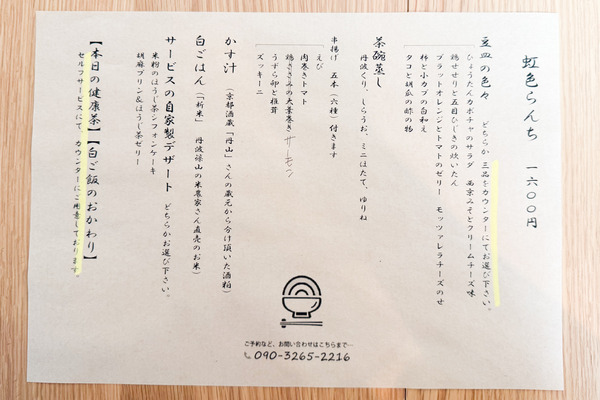 虹色らんち　一六〇〇円
豆皿の色々　どちらか 三品をカウンターにてお選び下さい。
ひょうたんカボチャのサラダ　西京みそとクリームチーズ味
鶏せせりと五目ひじきの炊いたん
ブラッドオレンジとトマトのゼリー　モッツァレラチーズのせ
柿と小カブの白和え
タコと胡瓜の酢の物
茶碗蒸し
丹波ぐり、しらうお、ミニほたて、ゆりね
串揚げ　五本（六種）付きます
えび
肉巻きトマト
鶏ささみの大葉巻き サーモン
うずら卵と椎茸
ズッキーニ
かす汁　（京都酒蔵「丹山」さんの蔵元から分け頂いた酒粕）
白ごはん（「新米」　丹波篠山の米農家さん直売のお米）
サービスの自家製デザート　どちらかお選び下さい。
米粉のほうじ茶シフォンケーキ
胡麻プリン＆ほうじ茶ゼリー
【本日の健康茶】【白ご飯のおかわり】
セルフサービスにて　カウンターにご用意しております。
ご予約など、お問い合わせはこちらまで…
090-3265-2216